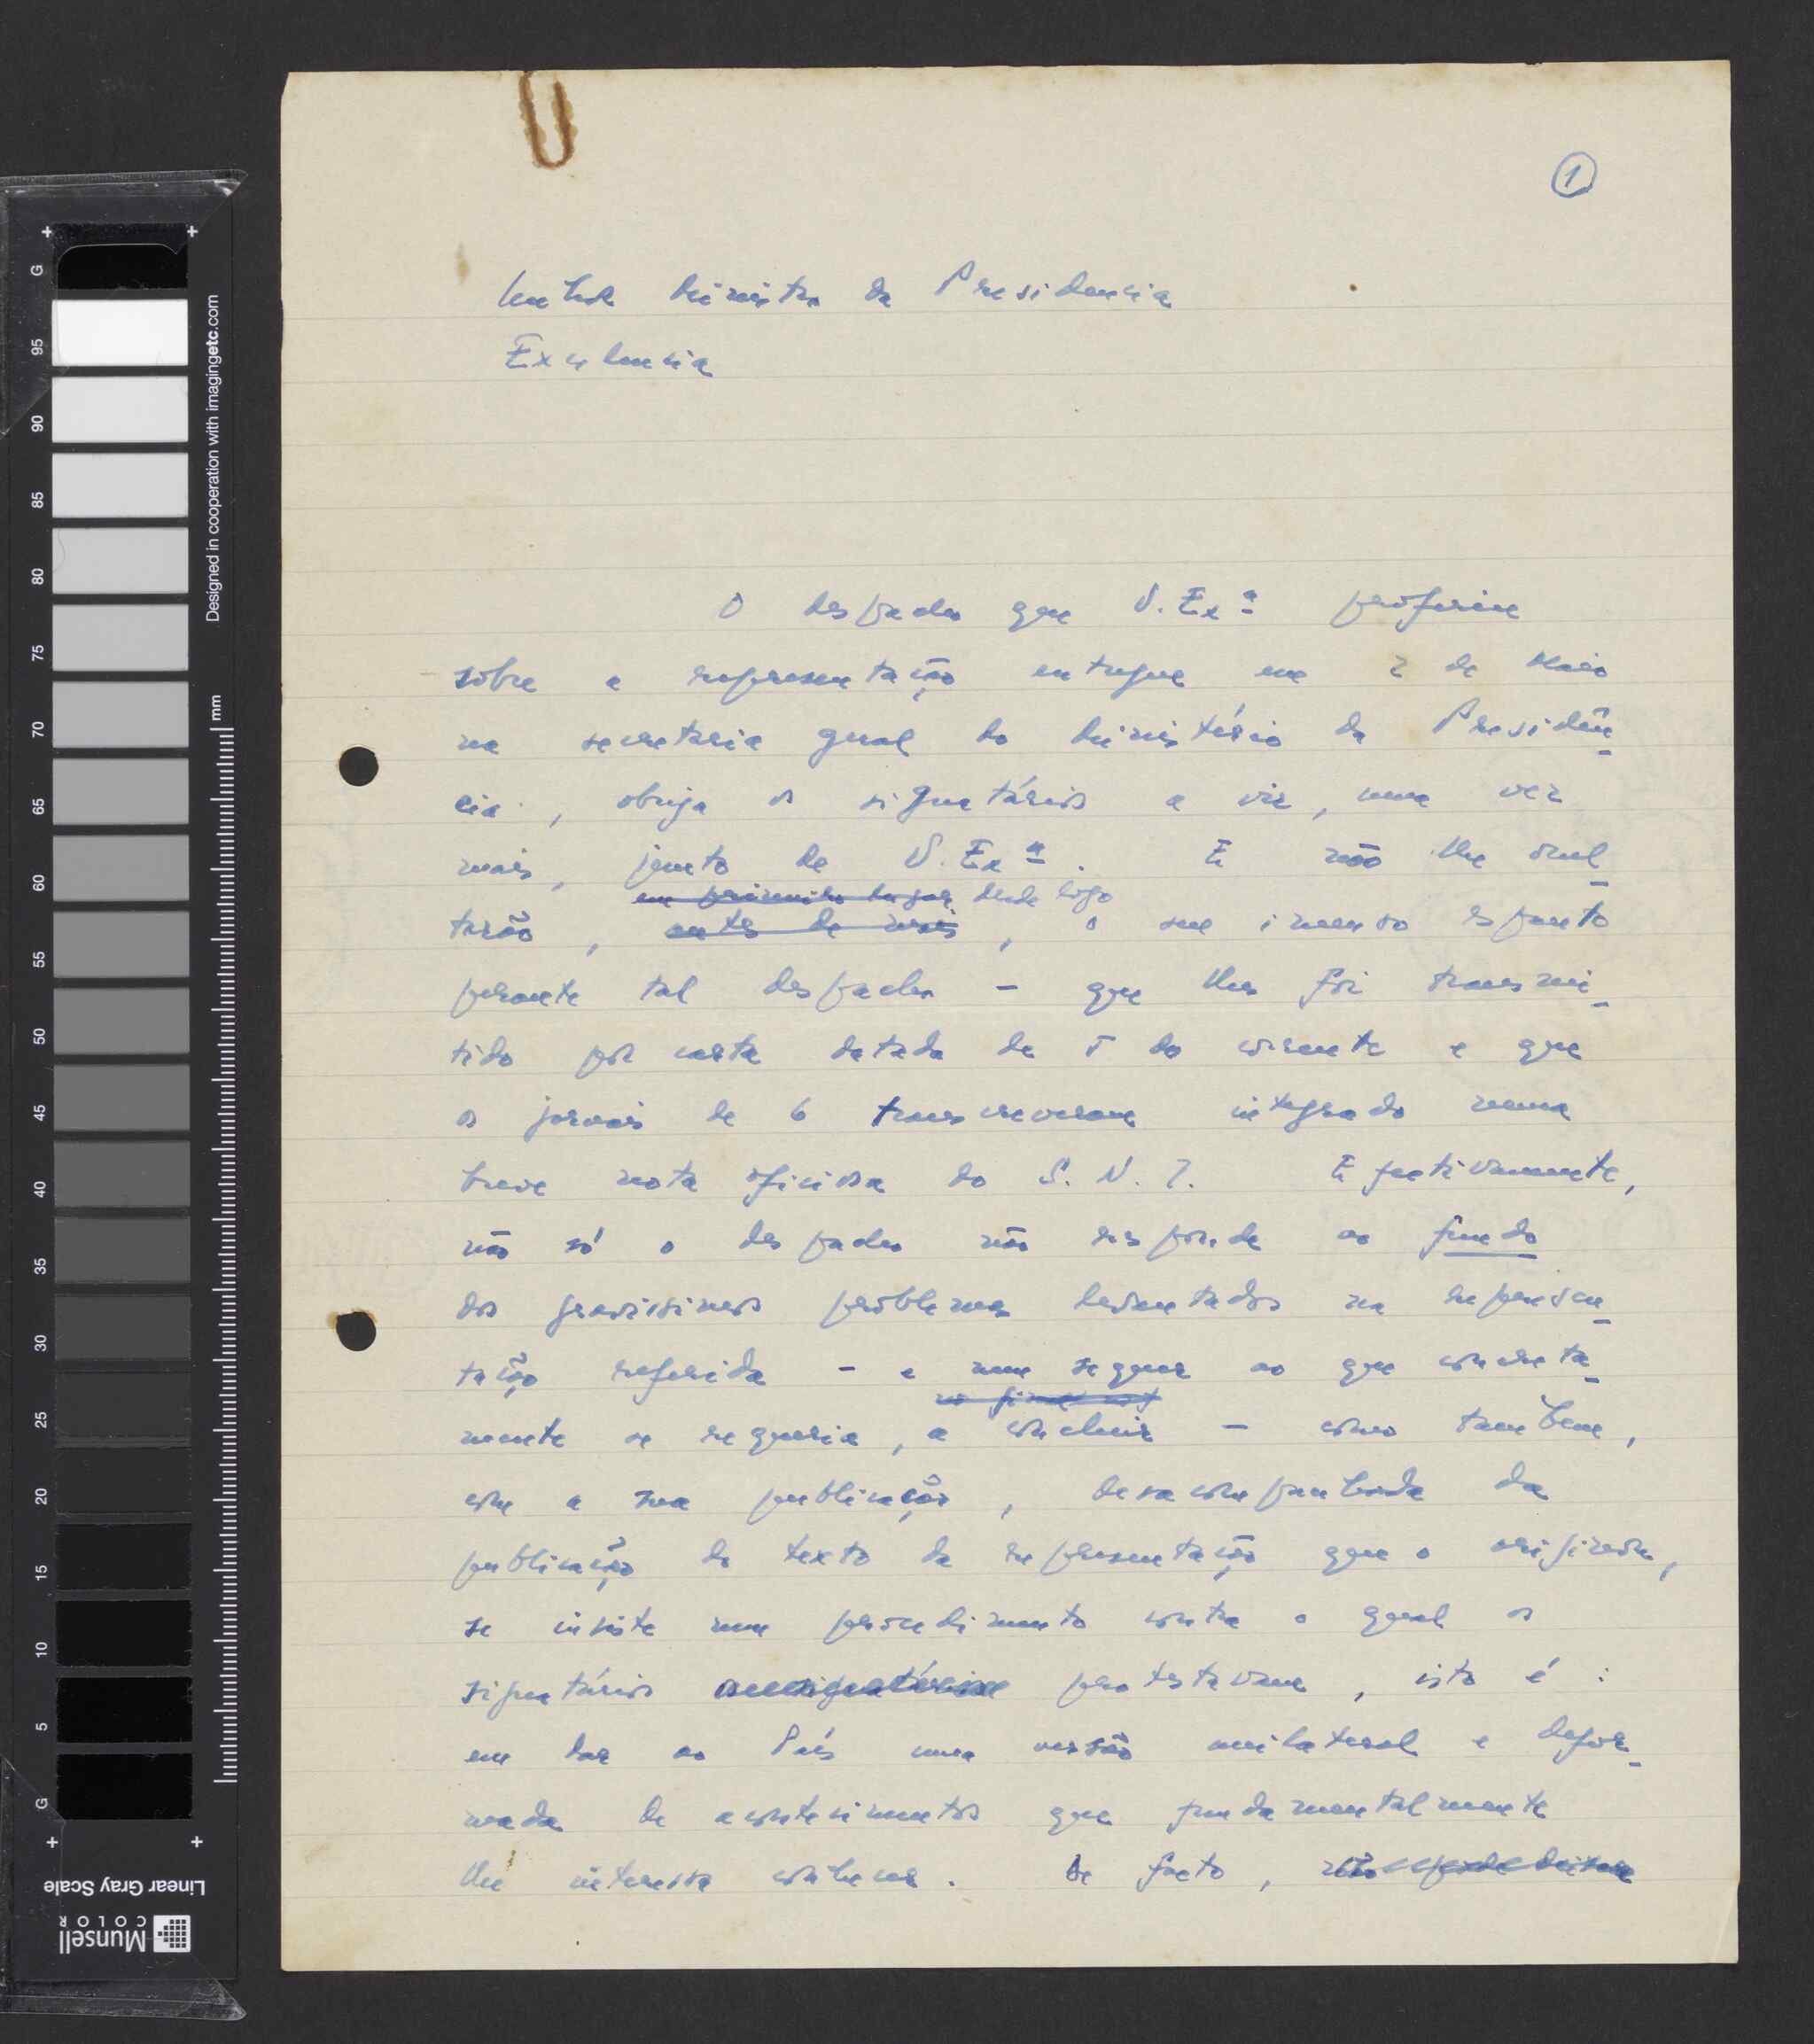 1
Senhor Ministro da Presidencia
Excelencia
O despacho que V. Exª proferiu
sobre a representação entregue em 2 de Maio
na secretaria geral do Ministério da Presidên-
cia, obriga os signatários a vir, uma vez
mais, junto de V. Exª. E não lhe ocul-
em primeiro lugar desde logo
tarão, antes de mais, o seu imenso espanto
perante tal despacho - que lhes foi transmi-
tido por carta datada de 5 do corrente e que
os jornais de 6 transcreveram integrado numa
breve nota oficiosa do S. N. I. Efectivamente,
não só o despacho não responde ao fundo
dos gravissimos problemas levantados na represen-
tação referida - e nem sequer ao que concreta-
no final
mente se requeria, a concluir - como tambem,
com a sua publicação, desacompanhada da
publicação do texto da representação que o originou,
se insiste num procedimento contra o qual os
signatários protestavam, isto é:
em dar ao País uma versão unilateral e defor-
mada de acontecimentos que fundamentalmente
lhe interessa conhecer. De facto, não pode deixar
G
95
90
85
80
75
70
65
60
55
50
45
40
35
30
25
20
15
10
5
G
mm
Designed in cooperation with imagingetc.com
Linear Gray Scale
Munsell
COLOR